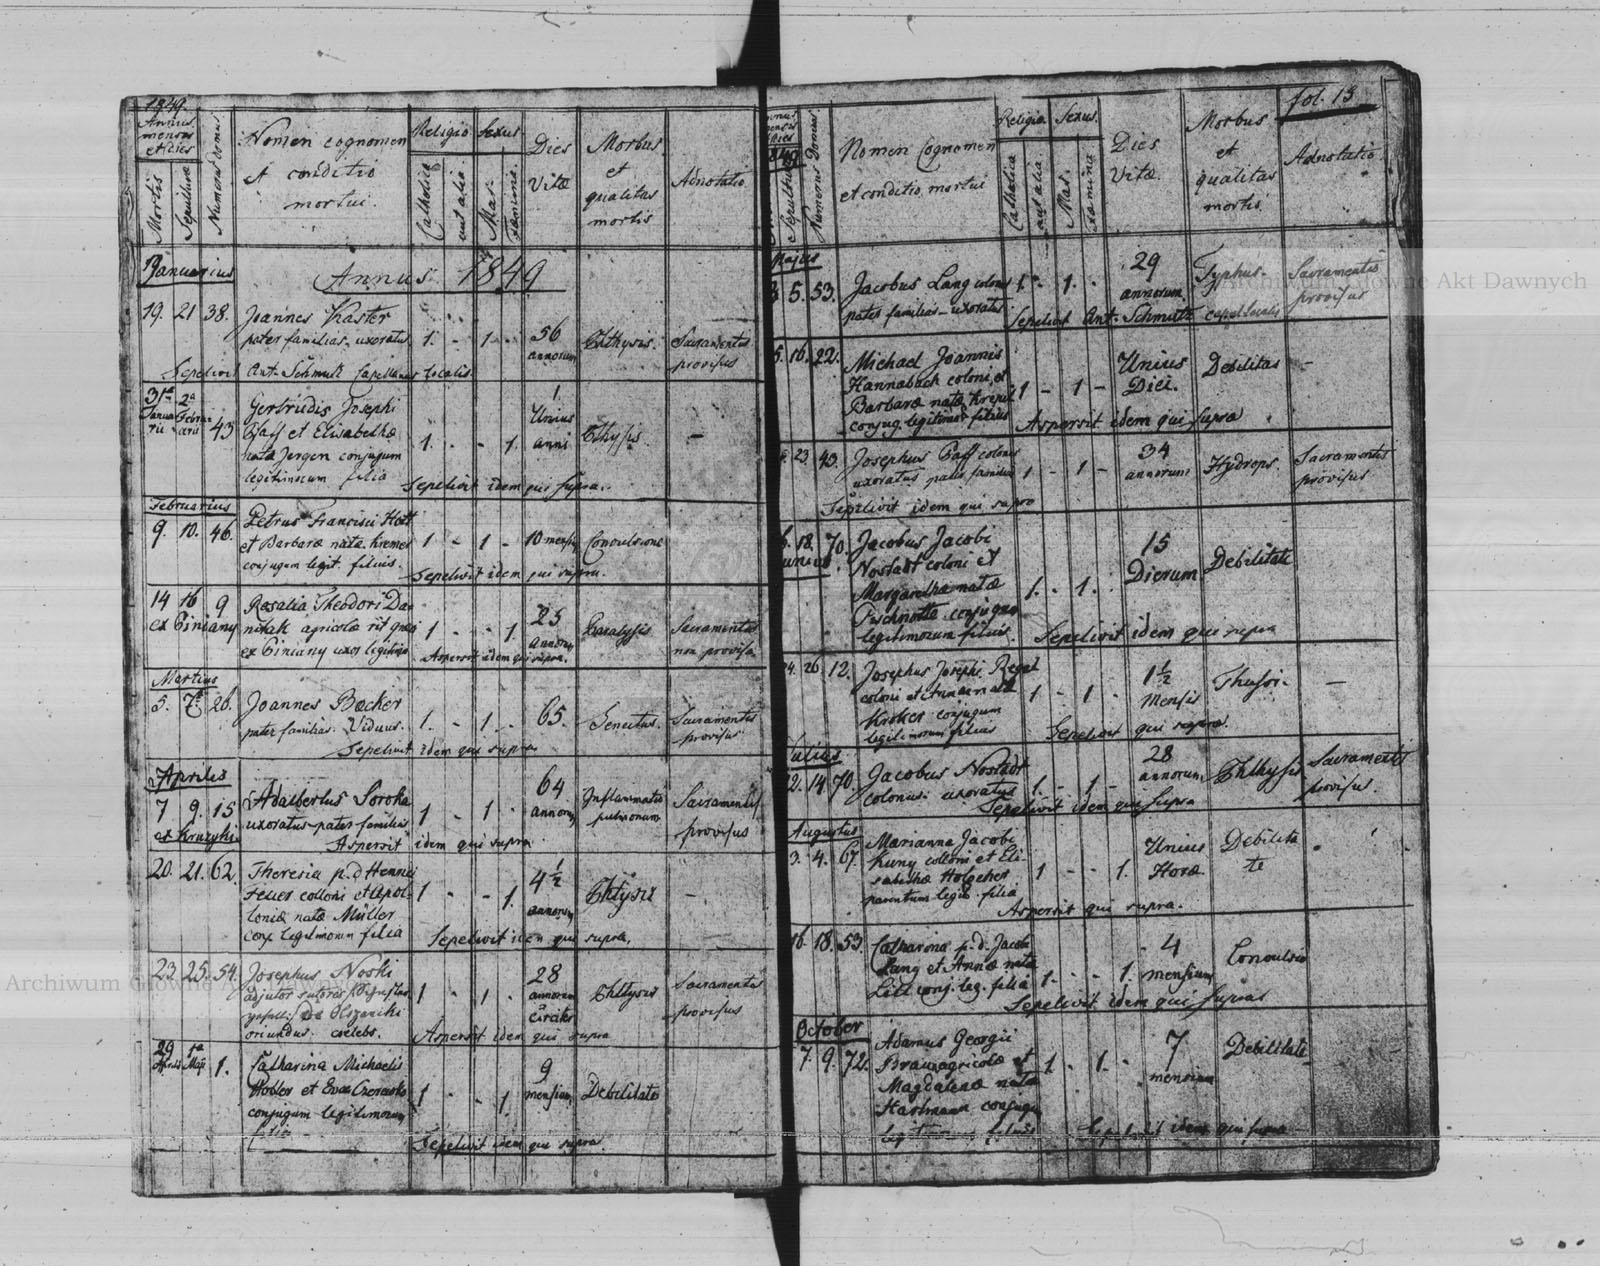 1849.
Annus
menses
et dies
Mortis
Sepulturae
Numerus domus
Nomen cognomen
et conditio
mortui.
Religio
Catholica
aut alia
Sexus
Mas.
Faeminin.
Dies
Vitae
Morbus
et
qualitas
mortis
Adnotatio
Januarius
Annus. 1849
19. 21 38. Joannes Kaster
pater familias. uxoratus 1. - 1 - 56 annorum Phthysis. Sacramentis provisus
Sepelivit Ant. Schmutz Capellanus localis
31 Januarii 2a Februarii 43 Gertrudis Josephi
Paff et Elisabethae 1. - - 1. Unius anni Phtysis. -
nata Jergen conjugum
legitimorum filia
Sepelivit idem qui supra.
Februarius
9. 10. 46. Petrus Francisci Hott
et Barbarae nata Kremer 1 - 1 - 10 mensium Convulsione
conjugum legit. filius.
Sepelivit idem qui supra.
14 16 9 Rosalia Theodori Da-
ex Giniany nitak agricolae rit. graeci 1 - - 1. 25 annorum Paralysis Sacramentis non provisa
ex Giniany uxor legitima
Aspersit idem qui supra.
Martius
5. 7. 26. Joannes Becker
pater familias. Viduus. 1. - 1 - 65. Senectus. Sacramentis provisus
Sepelivit idem qui supra
Aprilis
7 9. 15 Adalbertus Soroka
uxoratus pater familias 1 - 1 - 64 annorum Inflammatio pulmonum Sacramentis provisus
Aspersit idem qui supra
20. 21. 62. Theresia p. d. Henrici
Feuer colloni et Apol-
loniae natae Müller 1 - - 1. 4 1/2 annorum Phtysis -
conj. legitimorum filia
Sepelivit idem qui supra.
23. 25. 54. Josephus Noski
adjutor sutoris
oriundus. caelebs. 1 - 1 - 28 annorum circiter Phtysis Sacramentis provisus
Aspersit idem qui supra
29 Aprilis 1a Maji 1. Catharina Michaelis
Hobler et Evae
conjugum legitimorum 1 - - 1. 9 mensium Debilitate
filia
Sepelivit idem qui supra.
fol. 13
1849
Sepultura
Numerus Domus
Nomen Cognomen
et conditio mortui
Religio
Catholica
aut alia
Sexus.
Mas.
Faeminina
Dies
Vitae.
Morbus
et
qualitas
mortis.
Adnotatio
Majus
5. 53. Jacobus Lang colonus
pater familias uxoratus 1 - 1. - 29 annorum Typhus. Sacramentis provisus
Sepelivit Ant. Schmutz capel localis
16. 22. Michael Joannis
Hannaback coloni, et 1 - 1 - Unius Diei. Debilitas -
Barbarae nata
conjug. legitimor filius
Aspersit idem qui supra
23. 43. Josephus Paff colonus
uxoratus pater familias 1 - 1 - 34 annorum Hydrops. Sacramentis provisus
Sepelivit idem qui supra
18. 70. Jacobus Jacobi
Nostadt coloni et
Margarethae natae 1. - 1. 15 Dierum Debilitate
conjugum
legitimorum filius.
Sepelivit idem qui supra
24. 26. 12. Josephus Josephi Regel
coloni et Annae nata
Kroker conjugum 1 - 1 - 1 1/2 Mensis -
legitimorum filius
Sepelivit qui supra.
Julius
12. 14. 70. Jacobus Nostadt
colonus. uxoratus 1. - 1 - 28 annorum Phthysis Sacramentis provisus.
Sepelivit idem qui supra
Augustus
3. 4. 67. Marianna Jacobi
Kuny colloni et Eli-
sabethae Holgeher 1 - - 1. Unius Horae Debilitate
parentum legit. filia
Aspersit qui supra.
16. 18. 53. Catharina p. d. Jacobi
Lang et Annae nata 1. - - 1. 4 mensium Convulsio
conj. leg. filia
Sepelivit idem qui supra
October
7. 9. 72. Adamus Georgii
Braun agricolae et 1. - 1. - 7 mensium Debilitate
Magdalenae nata
Hartmann conjugum
filius
Sepelivit idem qui supra
Archiwum Główne Akt Dawnych
Archiwum Główne Akt Dawnych